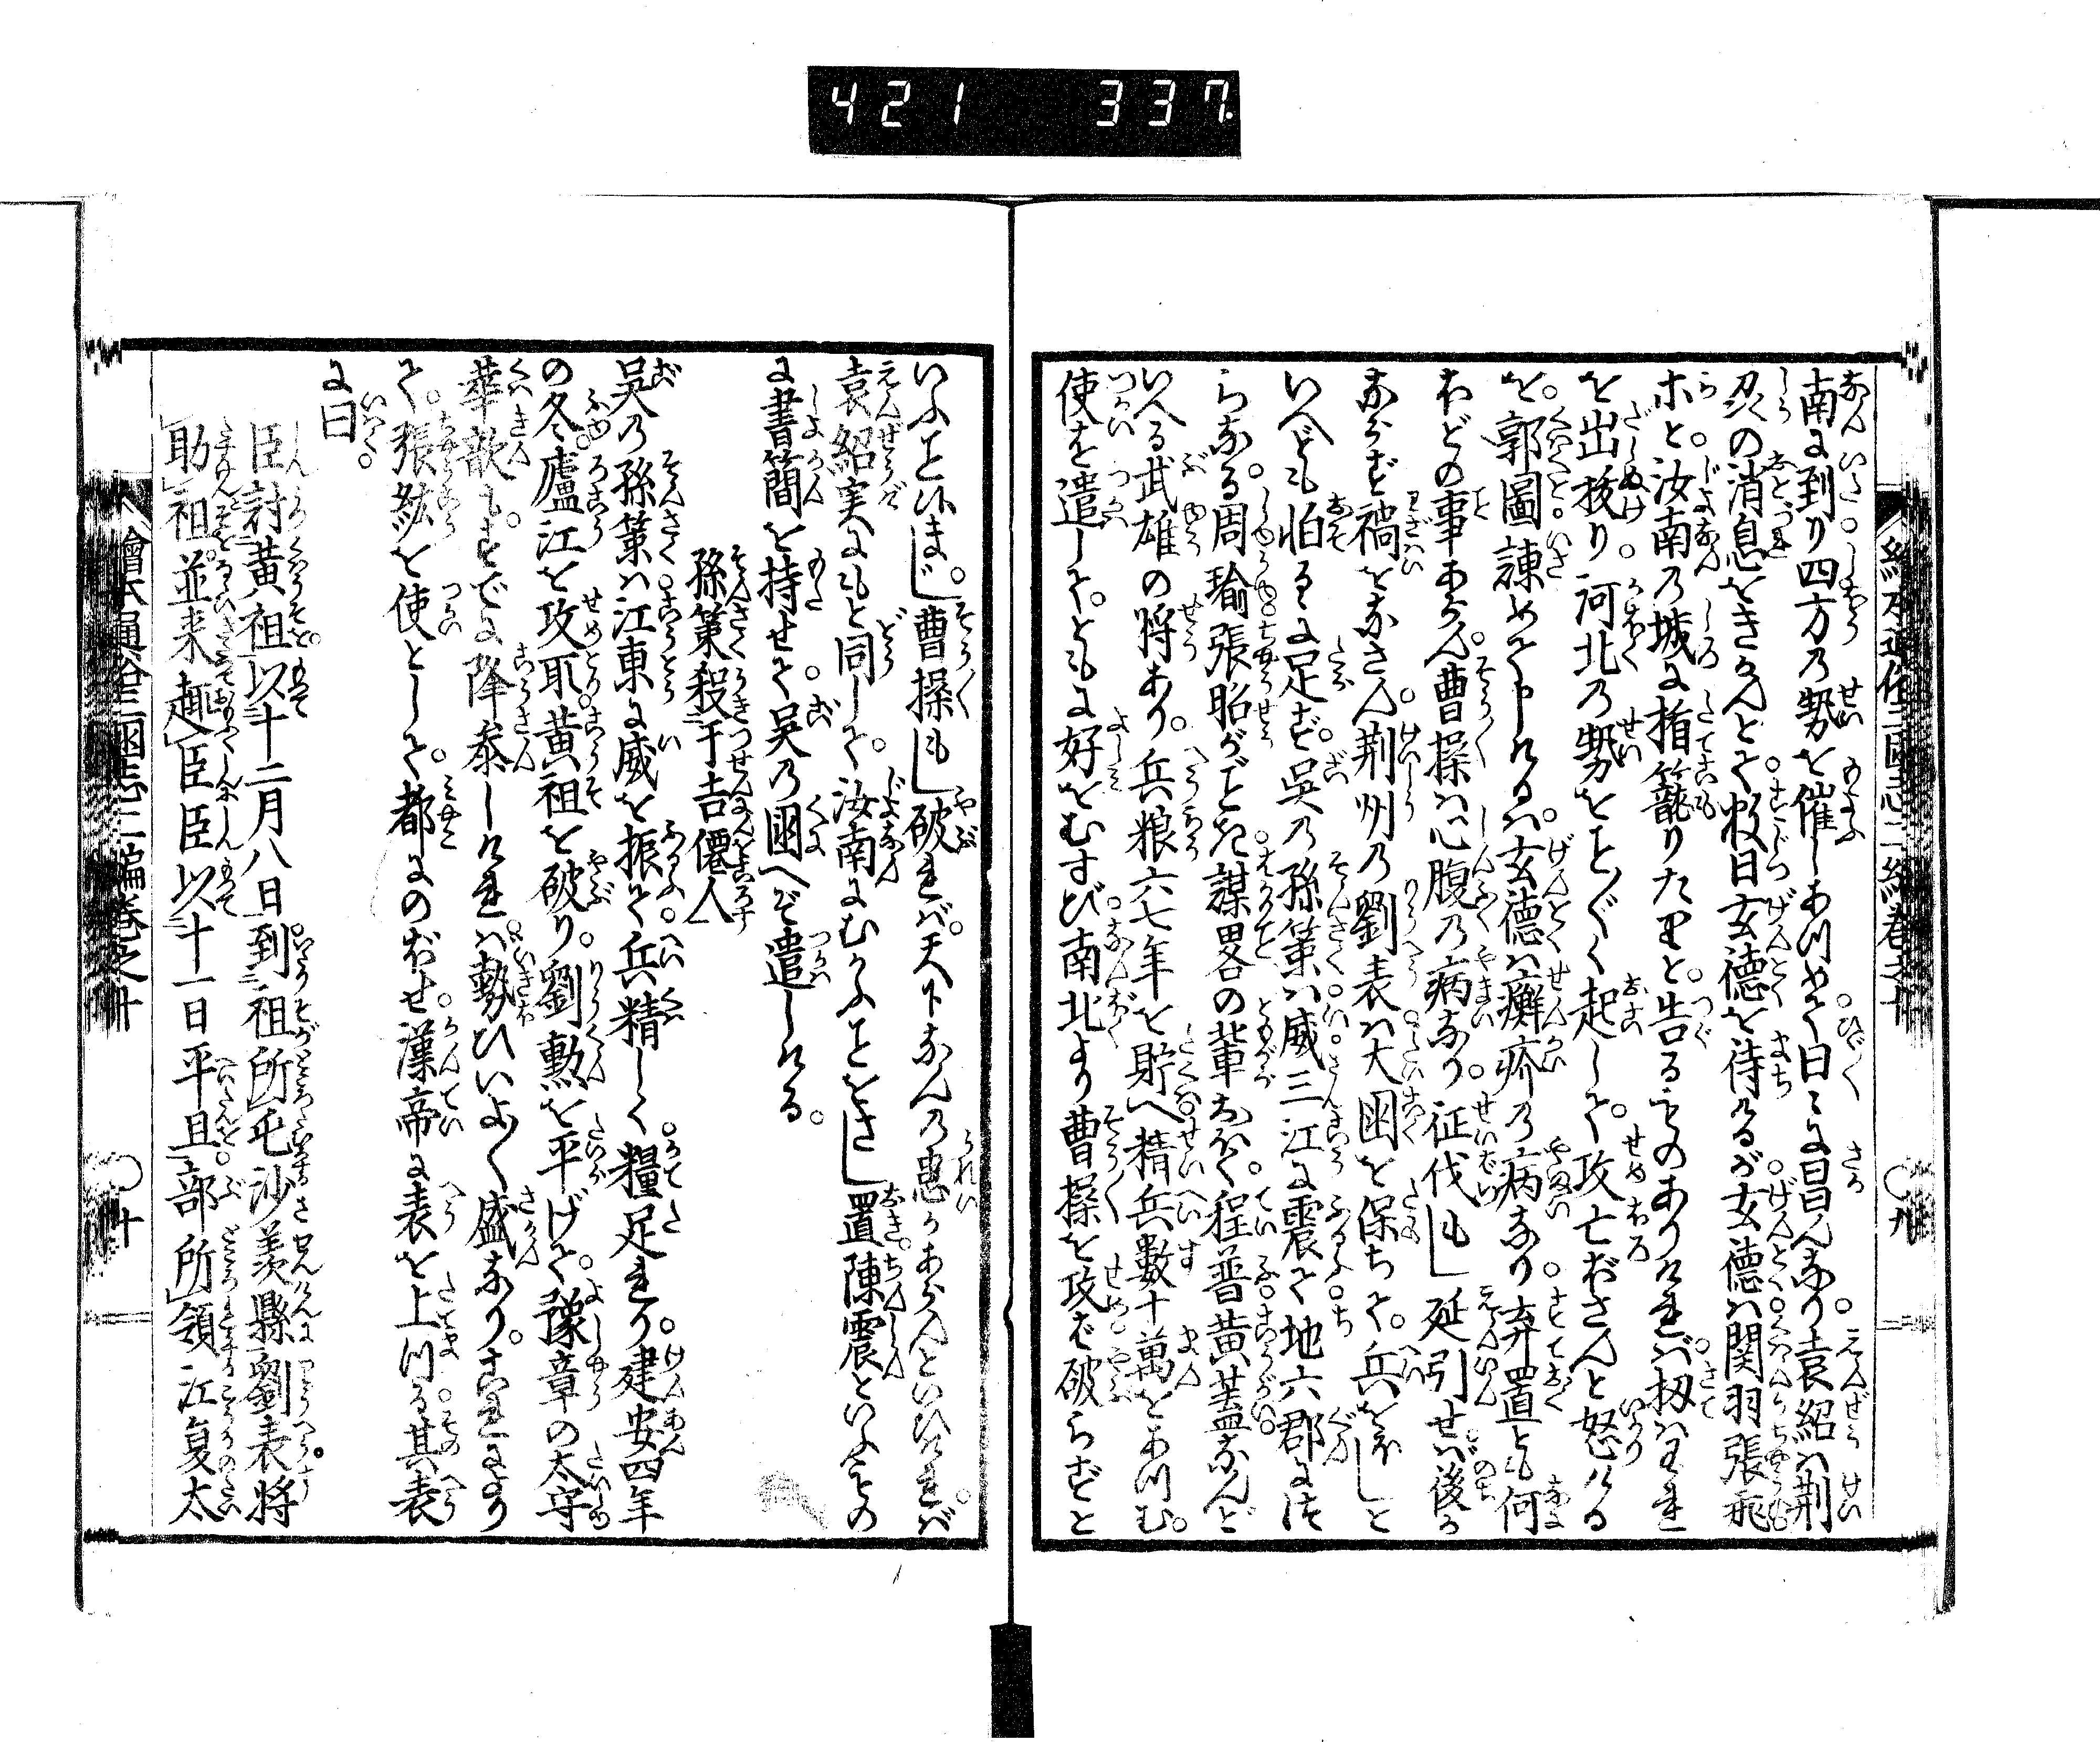 421 337
南に到り四方の勢を催しあつめて日々に昌んなり袁紹は荆
忍の消息をきかんとて数日玄徳を待るが玄徳は関羽張飛
ホと汝南の城に楯籠りたりと告るものありければ扨はわれ
を出抜り河北の勢をことごとく起して攻亡ぼさんと怒ける
を郭圖諫めて申けるは玄徳は癬疥の病なり弃置とも何
ほどの事あらん曹操は心腹の病なり征伐もし延引せば後か
ならず禍をなさん荆州の劉表は大国を保ちて兵をほしと
いへども怕るに足ず吳の孫策は威三江に震て地六郡につ
らなる周瑜張昭がごとき謀畧の輩おほく程普黄蓋なんど
いへる武雄の将あり兵粮六七年を貯へ精兵数十萬をあつむ
使を遣してともに好をむすび南北より曹操を攻ば破らずと
いふことなし曹操もし破ればば天下なんの患かあらんといひければ
袁紹実にもと同して汝南にむかふことをさし置陳震といふもの
に書簡を持せて吳の國へぞ遣しける
孫策殺于吉僊人
吳の孫策は江東に威を振て兵精しく糧足れり建安四年
の冬廬江を攻取黄祖を破り劉勲を平げて豫章の太守
華歆もすでに降泰しければ勢ひいよ〱盛なりこれより
て張紘を使として都にのぼせ漢帝に表を上つる其表
に曰
臣討黄祖以十二月八日到祖所屯沙羡縣劉表将
助祖並来趣臣臣以十一日平旦部所領江夏太
繪本通俗三國志二編卷之十 ○九
繪本通俗三國志二編卷之十 ○十